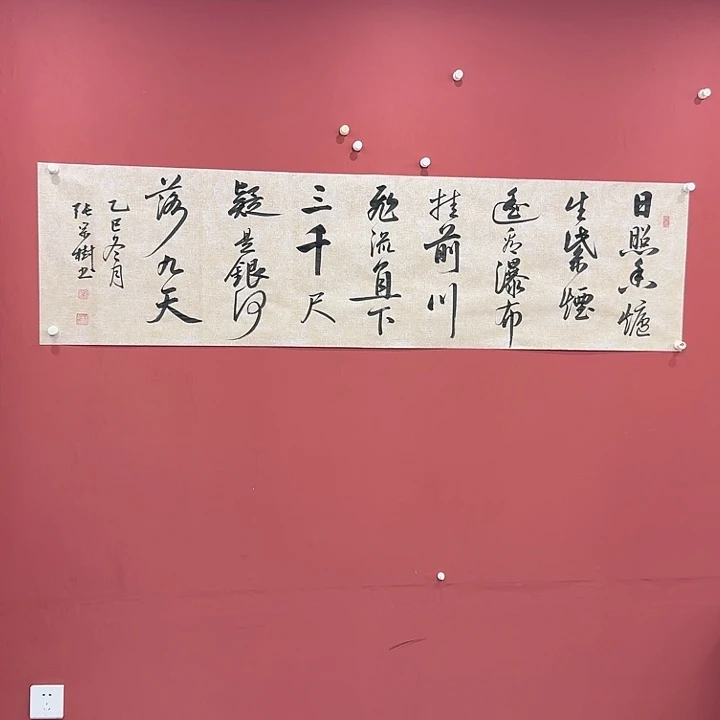 日照香爐
生紫煙
遥看瀑布
挂前川
飛流直下
三千尺
疑是銀河
落九天
乙巳冬月
张景樹书